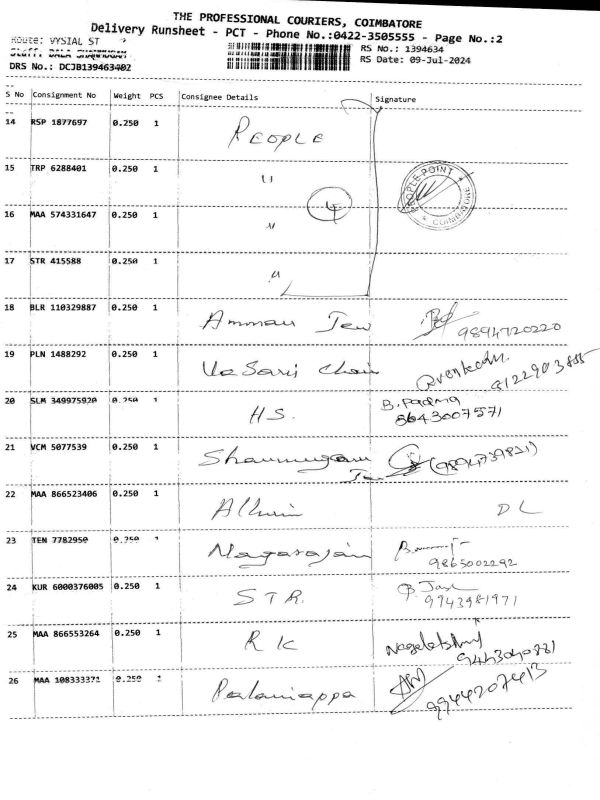 THE PROFESSIONAL COURIERS, COIMBATORE
Delivery Runsheet - PCT - Phone No.:0422-3505555 - Page No.:2
Route: VYSIAL ST
Staff: BALA SHANMUGAM
RS No.: 1394634
RS Date: 09-Jul-2024
DRS No.: DCJB139463402
S No Consignment No Weight PCS Consignee Details Signature
14 RSP 1877697 0.250 1 PEOPLE
15 TRP 6288401 0.250 1 "
PEOPLE POINT COIMBATORE
4
16 MAA 574331647 0.250 1 "
17 STR 415588 0.250 1 "
18 BLR 110329887 0.250 1 Amman Jew 9894720220
19 PLN 1488292 0.250 1 Chain 8122903855
20 SLM 349975920 0.250 1 H.S. B. Padma
8643007571
21 VCM 5077539 0.250 1 Shanmugam (9894739821)
22 MAA 866523406 0.250 1 DL
23 TEN 7782950 0.250 1 Nagarajan
9865002292
24 KUR 6000376005 0.250 1 STR.
9943981971
25 MAA 866553264 0.250 1 RK
26 MAA 108333371 0.250 1 Palaniappa 9944207413